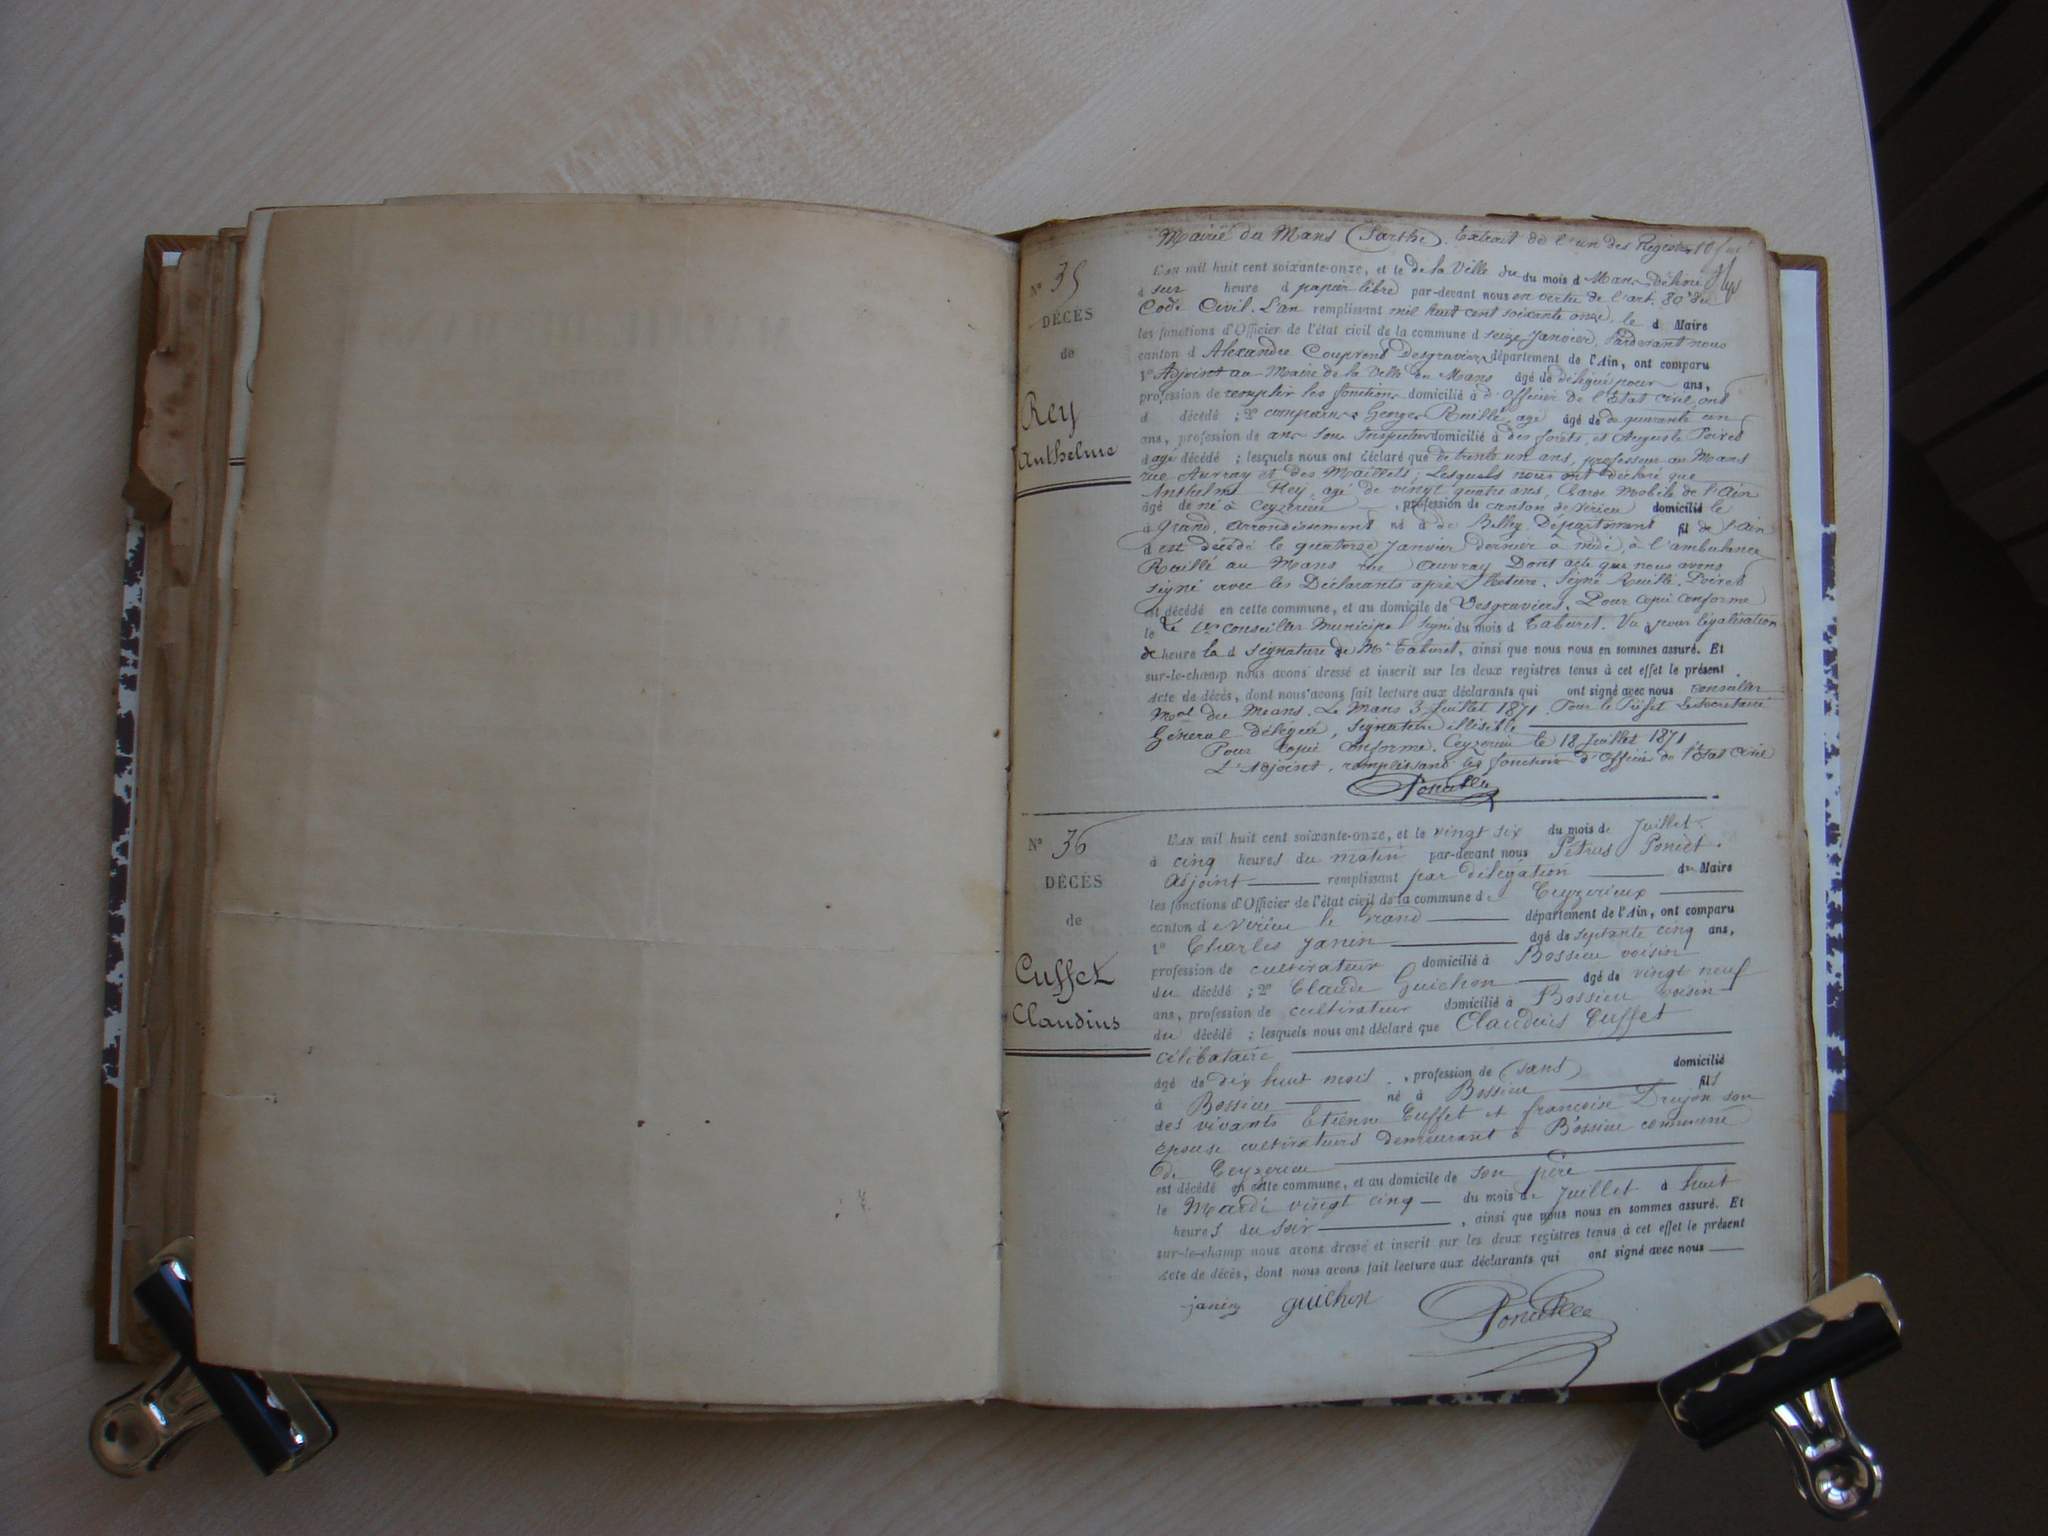 Mairie du Mans (Sarthe). Extrait de l'un des Registres
N° 35
DÉCÈS
de
Rey
Anthelme
L'AN mil huit cent soixante-onze, et le de la Ville du du mois d Mans Délivré
à sur heure d papier libre par-devant nous en vertu de l'art. 80 du
Code Civil. L'an remplissant mil huit cent soixante onze. le d Maire
les fonctions d'Officier de l'état civil de la commune d seize Janvier, Pardevant nous
canton d Alexandre Couprent Desgraviers département de l'Ain, ont comparu
1° Adjoint au Maire de la Ville du Mans âgé de délégué pour ans,
profession de remplir les fonctions domicilié à d'Officier de l'Etat Civil, ont
d décédé ; 2° comparu Georges Rouillé, agé âgé de de quarante un
ans, profession de ans Sous Inspecteur domicilié à des forêts, et Auguste Poirée
d agé décédé ; lesquels nous ont déclaré que de trente un ans, professeur au Mans
rue Auvray et des Maillets ; Lesquels nous ont déclaré que
Anthelme Rey, agé de vingt quatre ans, Garde Mobile de l'Ain
âgé de né à Ceyzerieu , profession de canton de Virieu domicilié le
à Grand, arrondissement né à de Belley, Département fil de l'Ain
d est décédé le quatorze Janvier dernier à midi, à l'ambulance
Rouillé au Mans rue Auvray Dont acte que nous avons
signé avec les Déclarants après lecture. Signé Rouillé. Poirée
est décédé en cette commune, et au domicile de Desgraviers. Pour copie conforme
le Le 1er Conseiller Municipal signé du mois d Taburet. Vu à pour légalisation
de heure la d signature de Mr Taburet, ainsi que nous nous en sommes assuré. Et
sur-le-champ nous avons dressé et inscrit sur les deux registres tenus à cet effet le présent
acte de décès, dont nous avons fait lecture aux déclarants qui ont signé avec nous conseiller
Mpal du Mans. Le Mans 3 Juillet 1871. Pour le Préfet Le Secrétaire
Général délégué, signature illisible
Pour copie conforme. Ceyzerieu le 18 Juillet 1871
L'Adjoint, remplissant les fonctions d'Officier de l'Etat Civil
N° 36
DÉCÈS
de
Cuffet
Claudius
L'AN mil huit cent soixante-onze, et le vingt six du mois de Juillet
à cinq heures du matin par-devant nous Pétrus Poncet
Adjoint remplissant par délégation du Maire
les fonctions d'Officier de l'état civil de la commune de Ceyzerieux
canton de Virieu le Grand département de l'Ain, ont comparu
1° Charles Janin âgé de septante cinq ans,
profession de cultivateur domicilié à Bossieu voisin
du décédé ; 2° Claude Guichon âgé de vingt neuf
ans, profession de cultivateur domicilié à Bossieu voisin
du décédé ; lesquels nous ont déclaré que Claudius Cuffet
célibataire
âgé de dix huit mois , profession de (sans) domicilié
à Bossieu né à Bossieu fils
des vivants Etienne Cuffet et françoise Drujon son
épouse cultivateurs demeurant à Bossieu commune
de Ceyzerieu
est décédé en cette commune, et au domicile de son père
le Mardi vingt cinq du mois de Juillet à huit
heures du soir , ainsi que nous nous en sommes assuré. Et
sur-le-champ nous avons dressé et inscrit sur les deux registres tenus à cet effet le présent
acte de décès, dont nous avons fait lecture aux déclarants qui ont signé avec nous
janin guichon